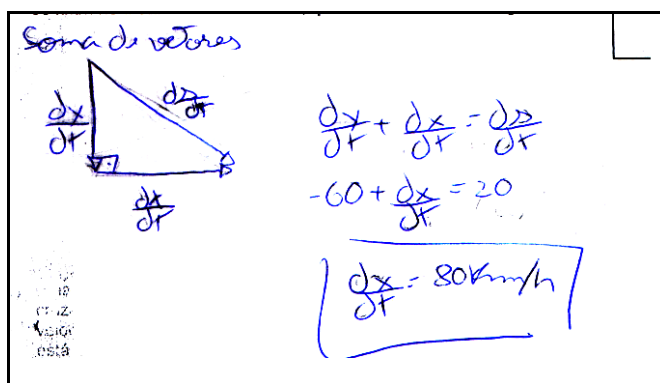 Soma de vetores
dx/dt
ds/dt
dx/dt
dy/dt + dx/dt = ds/dt
-60 + dx/dt = 20
dx/dt = 80 km/h
está